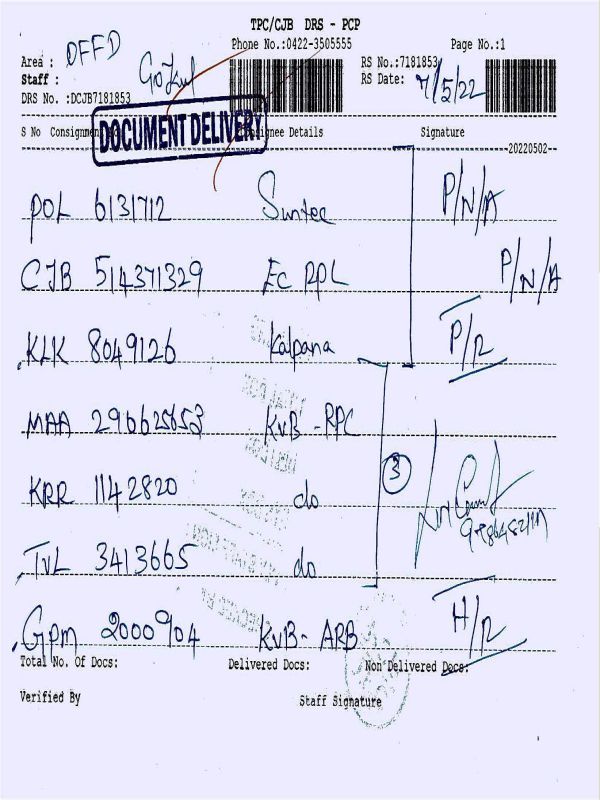 TPC/CJB DRS - PCP
Phone No.:0422-3505555 Page No.:1
Area : OFFD
Staff : Gokul
RS No.:7181853
RS Date: 7/5/22
DRS No. :DCJB7181853
DOCUMENT DELIVERY
S No Consignment Consignee Details Signature
20220502
POL 6131712 Suntec P/N/A
CJB 514371329 EC RPL P/N/A
KLK 8049126 Kalpana P/R
MAA 296625653 KVB - RPC
KRR 1142820 do 3
TVL 3413665 do
GPM 2000904 KVB - ARB H/R
Total No. Of Docs: Delivered Docs: Non Delivered Docs:
Verified By Staff Signature